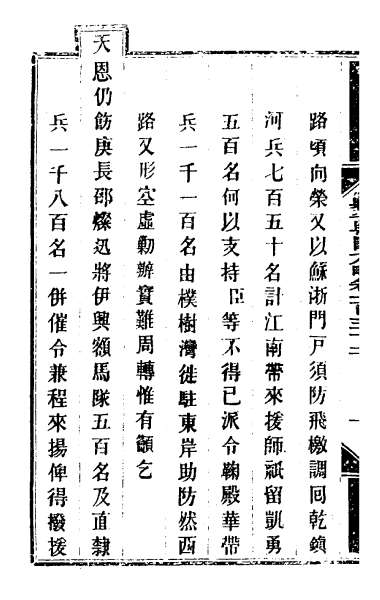 路頃向榮又以蘇浙門戶須防飛檄調回乾鎮
河兵七百五十名計江南帶來援師祇留凱勇
五百名何以支持臣等不得已派令鞠殿華帶
兵一千一百名由樸樹灣徙駐東岸助防然西
路又形空虛勦辦實難周轉惟有籲乞
天恩仍飭庚長邵燦迅將伊興額馬隊五百名及直隸
兵一千八百名一併催令兼程來揚俾得撥援